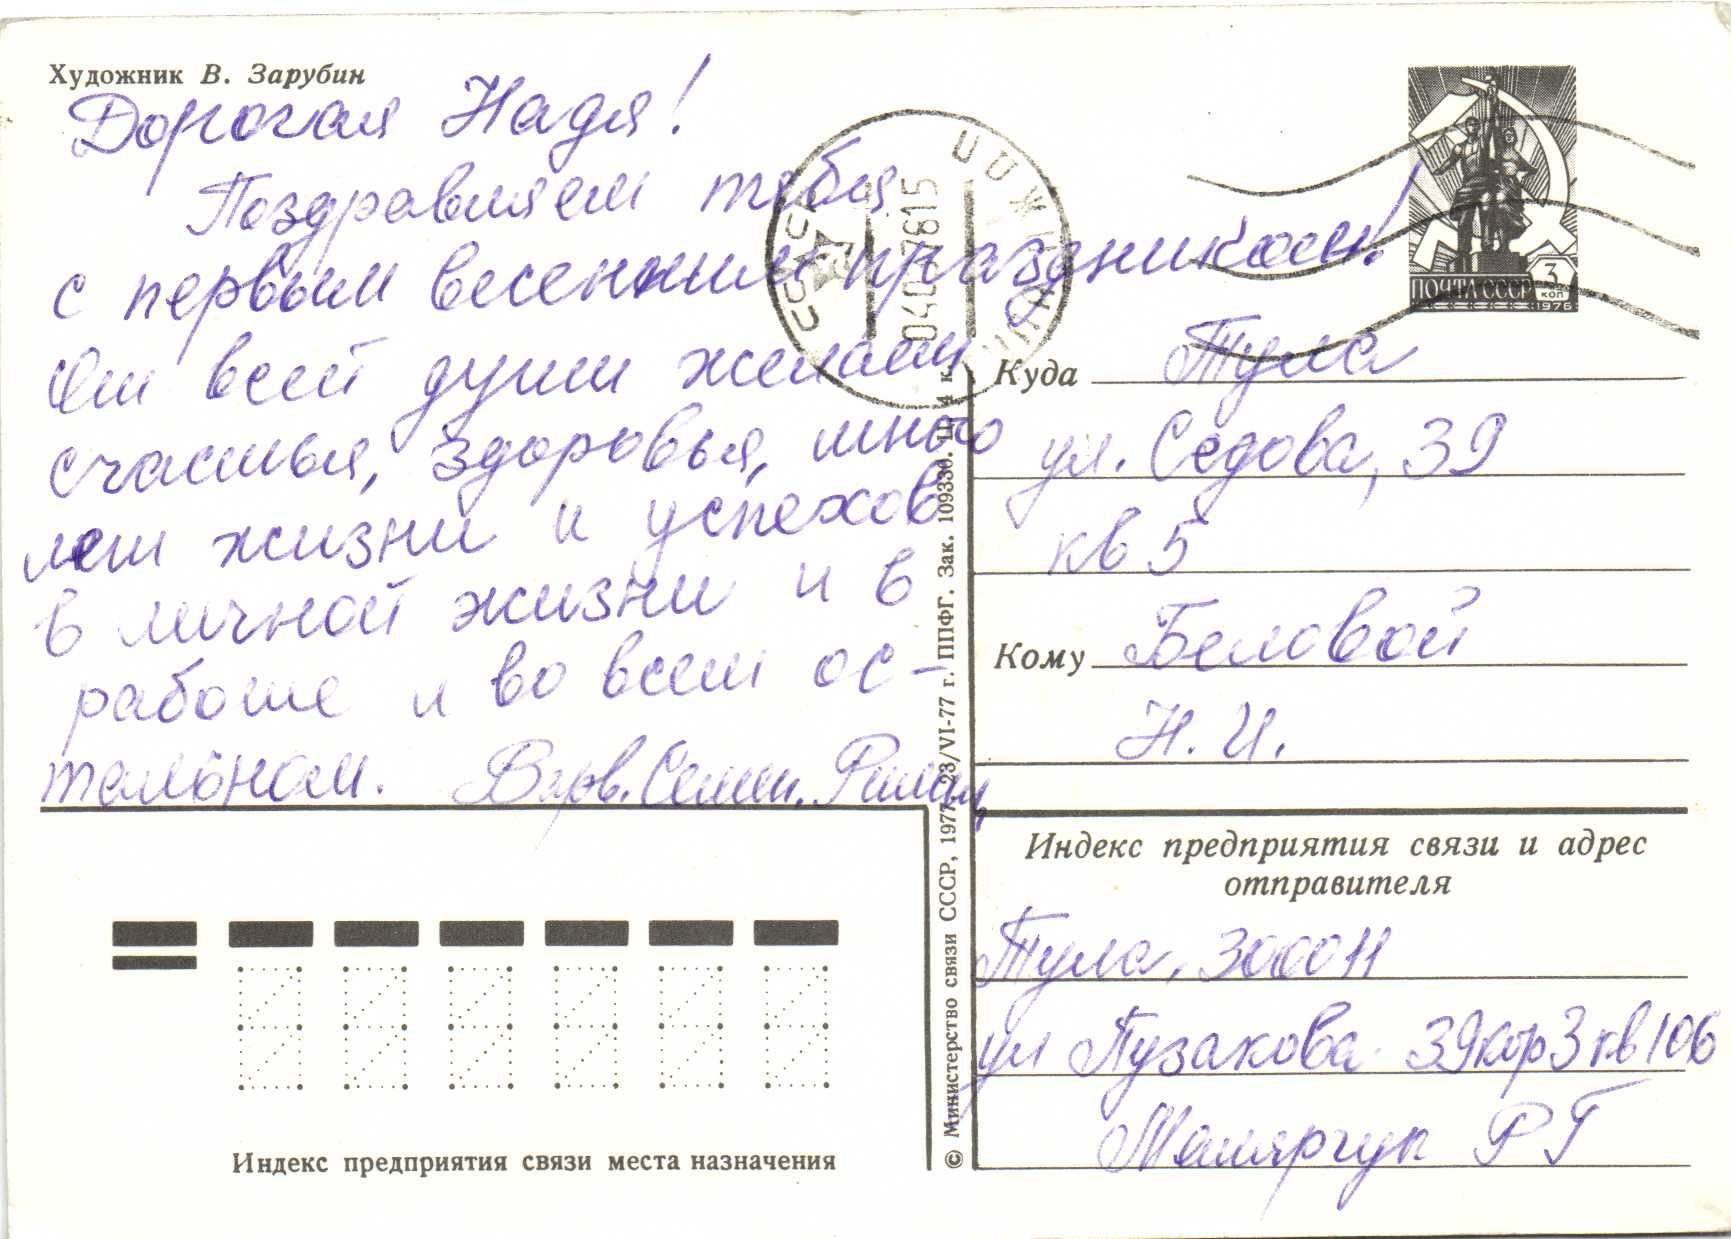 Художник В. Зарубин
Дорогая Надя!
Поздравляем тебя
с первым весенним праздником!
От всей души желаем
счастья, здоровья, много
лет жизни и успехов
в личной жизни и в
работе и во всем ос-
тальном. Варв. Семен. Римма
ПОЧТА СССР
3
КОП
1976
СССР
040378 15
Куда Тула
ул. Седова, 39
кв 5
Кому Беловой
Н. И.
Индекс предприятия связи и адрес
отправителя
Тула, 300011
ул Пузакова 39 кор 3 кв 106
РГ
Индекс предприятия связи места назначения
© Министерство связи СССР, 1977. 23/VI-77 г. ППФГ. Зак. 109330. Ц. 4 к.